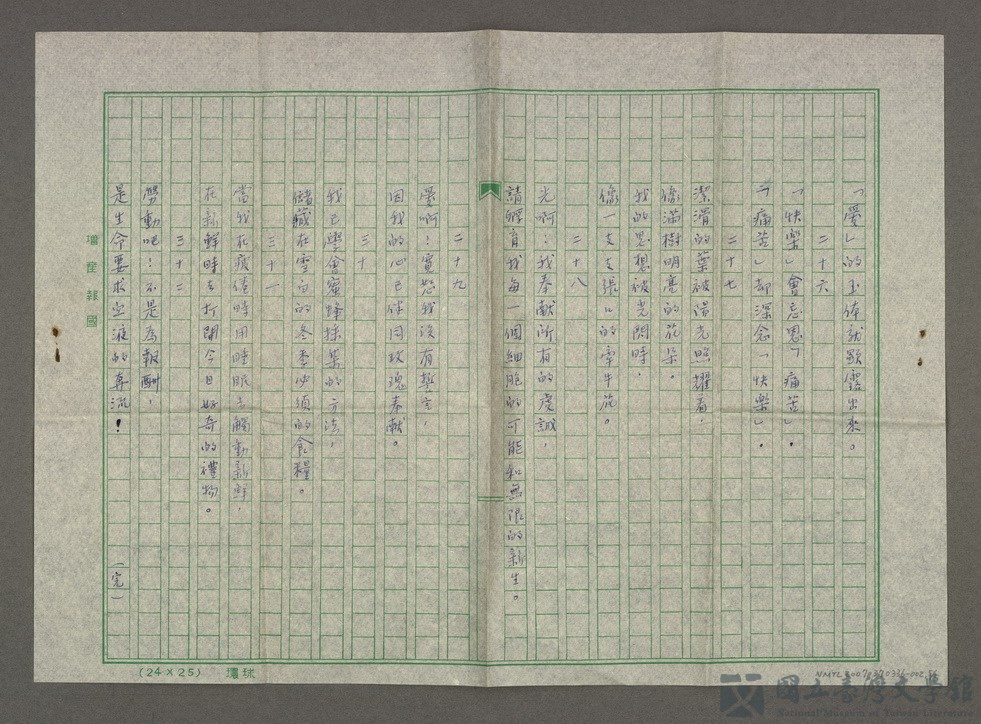 「愛」的玉体就顯露出來。
二十六
「快樂」會忘恩「痛苦」，
「痛苦」却深念「快樂」。
二十七
潔淨的葉被陽光照耀着，
像滿樹明亮的花朵。
我的思想被光閃時，
像一支支張口的牽牛花。
二十八
光啊！我奉獻所有的虔誠，
請孵育我每一個細胞的可能和無限的新生。
二十九
愛啊！寬恕我沒有誓言，
因我的心已伴同玫瑰奉獻。
三十
我已學會蜜蜂採集的方法，
儲藏在雪白的冬季必須的食糧。
三十一
當我在疲倦時用時眼去觸動新鮮，
在新鮮時去打開今日好奇的禮物。
三十二
勞動吧！不是為報酬，
是生命要求血液的奔流！
（完）
壇星報國
(24×25) 環球
NMTL20070270336-002
國立臺灣文學館
National Museum of Taiwan Literature